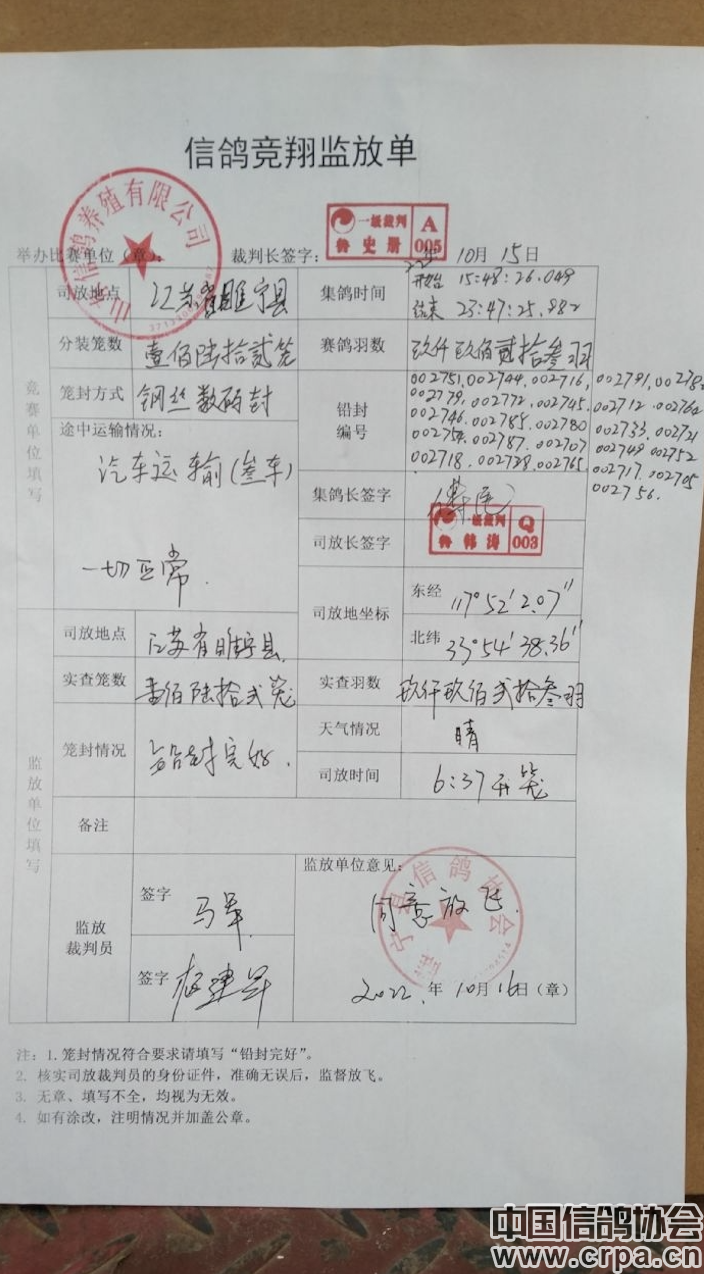 信鸽竞翔监放单
信鸽养殖有限公司
一级裁判 A
鲁 史册 005
举办比赛单位(章): 裁判长签字: 10月15日
竞赛单位填写
司放地点 江苏省睢宁县 集鸽时间 开始 15:48:26.049
结束 23:47:25.882
分装笼数 壹佰陆拾贰笼 赛鸽羽数 玖仟玖佰贰拾叁羽
笼封方式 钢丝数码封 铅封编号
002751,002744,002716,002791,00278
002779,002772,002745,002712,002762
002746,002785,002780 002733,002721
002754,002787,002707 002749 002752
002718,002728,002765 002717,002705
002756.
途中运输情况:
汽车运输(叁车)
一切正常.
集鸽长签字
司放长签字
一级裁判 Q
鲁 韩涛 003
司放地坐标 东经 117°52′2.07″
北纬 33°54′38.36″
监放单位填写
司放地点 江苏省睢宁县
实查笼数 壹佰陆拾贰笼 实查羽数 玖仟玖佰贰拾叁羽
笼封情况 铅封完好. 天气情况 晴
司放时间 6:37开笼
备注
监放裁判员 签字 监放单位意见:
同意放飞.
宁县信鸽协会
签字 2022.年10月16日(章)
注:1.笼封情况符合要求请填写“铅封完好”。
2. 核实司放裁判员的身份证件,准确无误后,监督放飞。
3. 无章、填写不全,均视为无效。
4. 如有涂改,注明情况并加盖公章。
中国信鸽协会
www.crpa.cn